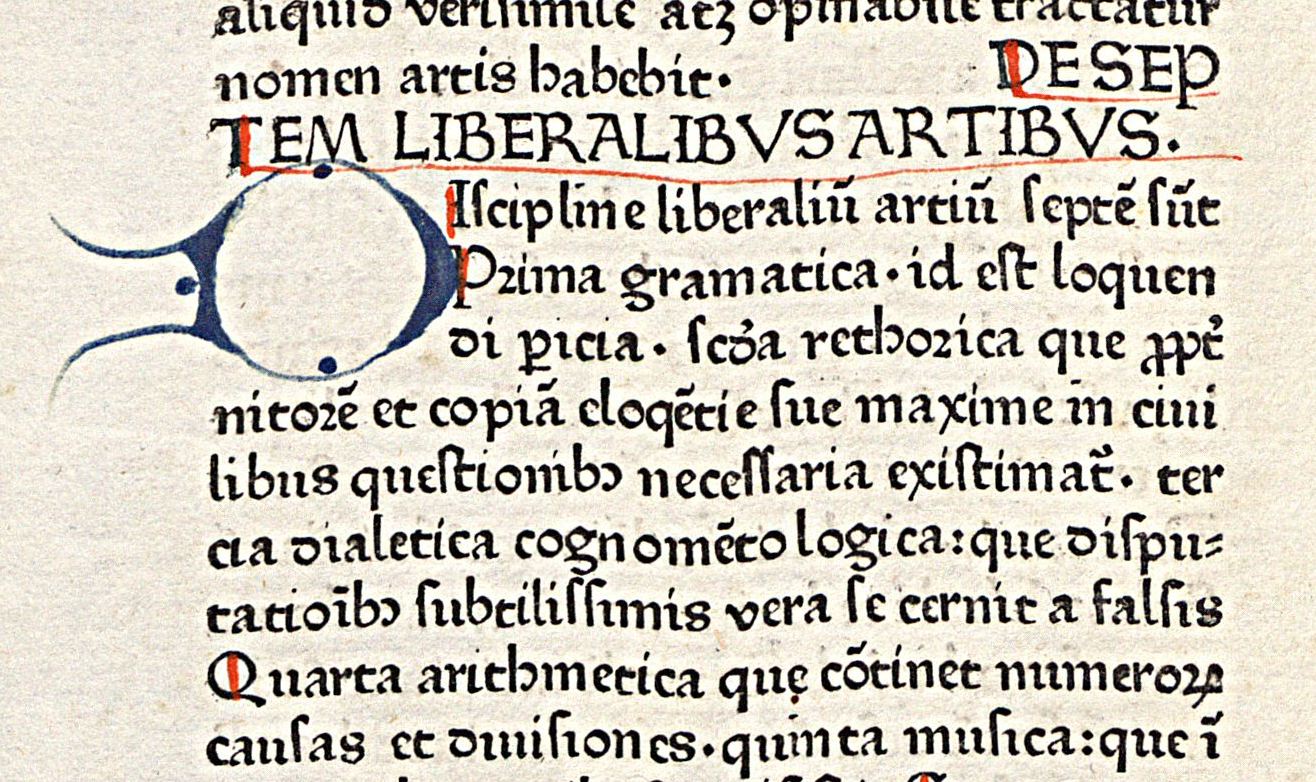 aliquid verisimile atꝫ opinabile tractatur
nomen artis habebit. DE SEP
TEM LIBERALIBVS ARTIBVS.
DIſcipline liberaliū artiū ſeptē ſūt
Prima gramatica. id eſt loquen
di ꝑicia. ſcða rethoꝛica que ꝓpt̄
nitoꝛē et copiā eloqētie ſue maxime in ciui
libus queſtionibꝰ neceſſaria exiſtimat̄. ter
cia dialetica cognomēto logica: que diſpu⸗
tatioībꝰ ſubtiliſſimis vera ſecernit a falſis
Quarta arithmetica quę cōtinet numeroꝝ
cauſas et diuiſiones. quinta muſica: que ī